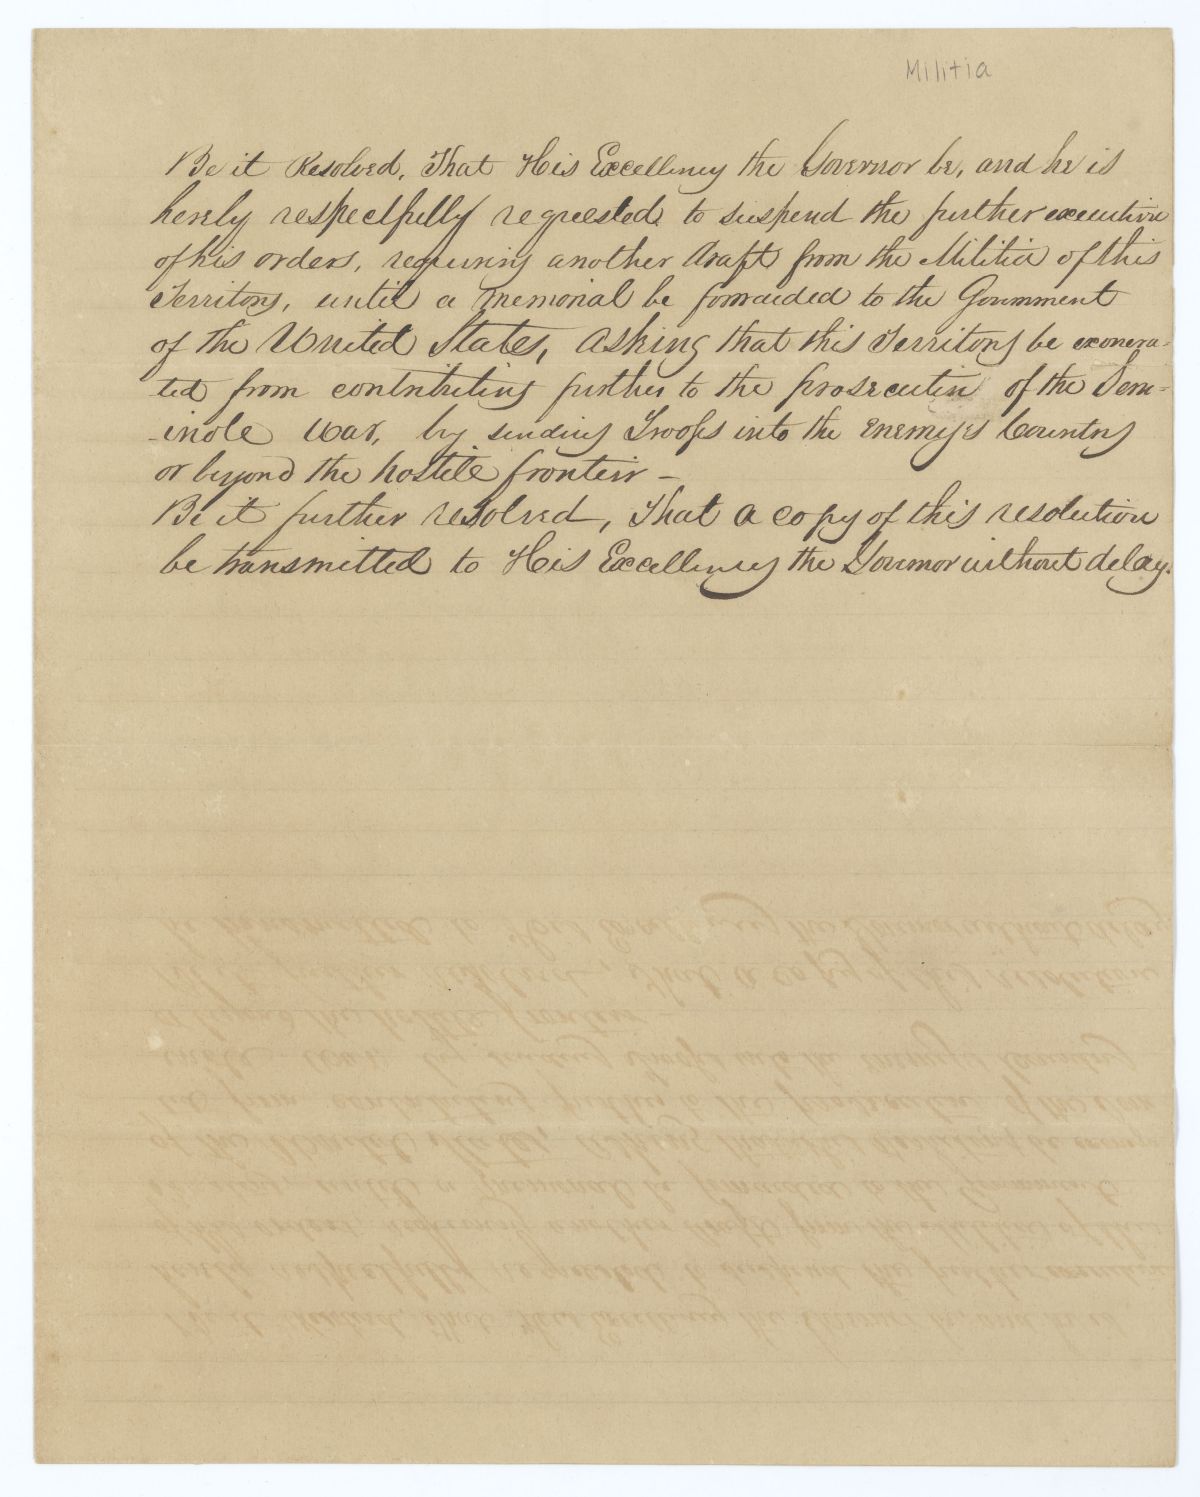 Militia
Be it Resolved, That His Excellency the Governor be, and he is
hereby respectfully requested to suspend the further execution
of his orders, requiring another draft from the Militia of this
Territory, until a memorial be forwarded to the Government
of the United States, asking that this Territory be exonera-
ted from contributing further to the prosecution of the Sem-
-inole War, by sending Troops into the enemy's Country
or beyond the hostile frontier -
Be it further resolved, That a copy of this resolution
be transmitted to His Excellency the Governor without delay.